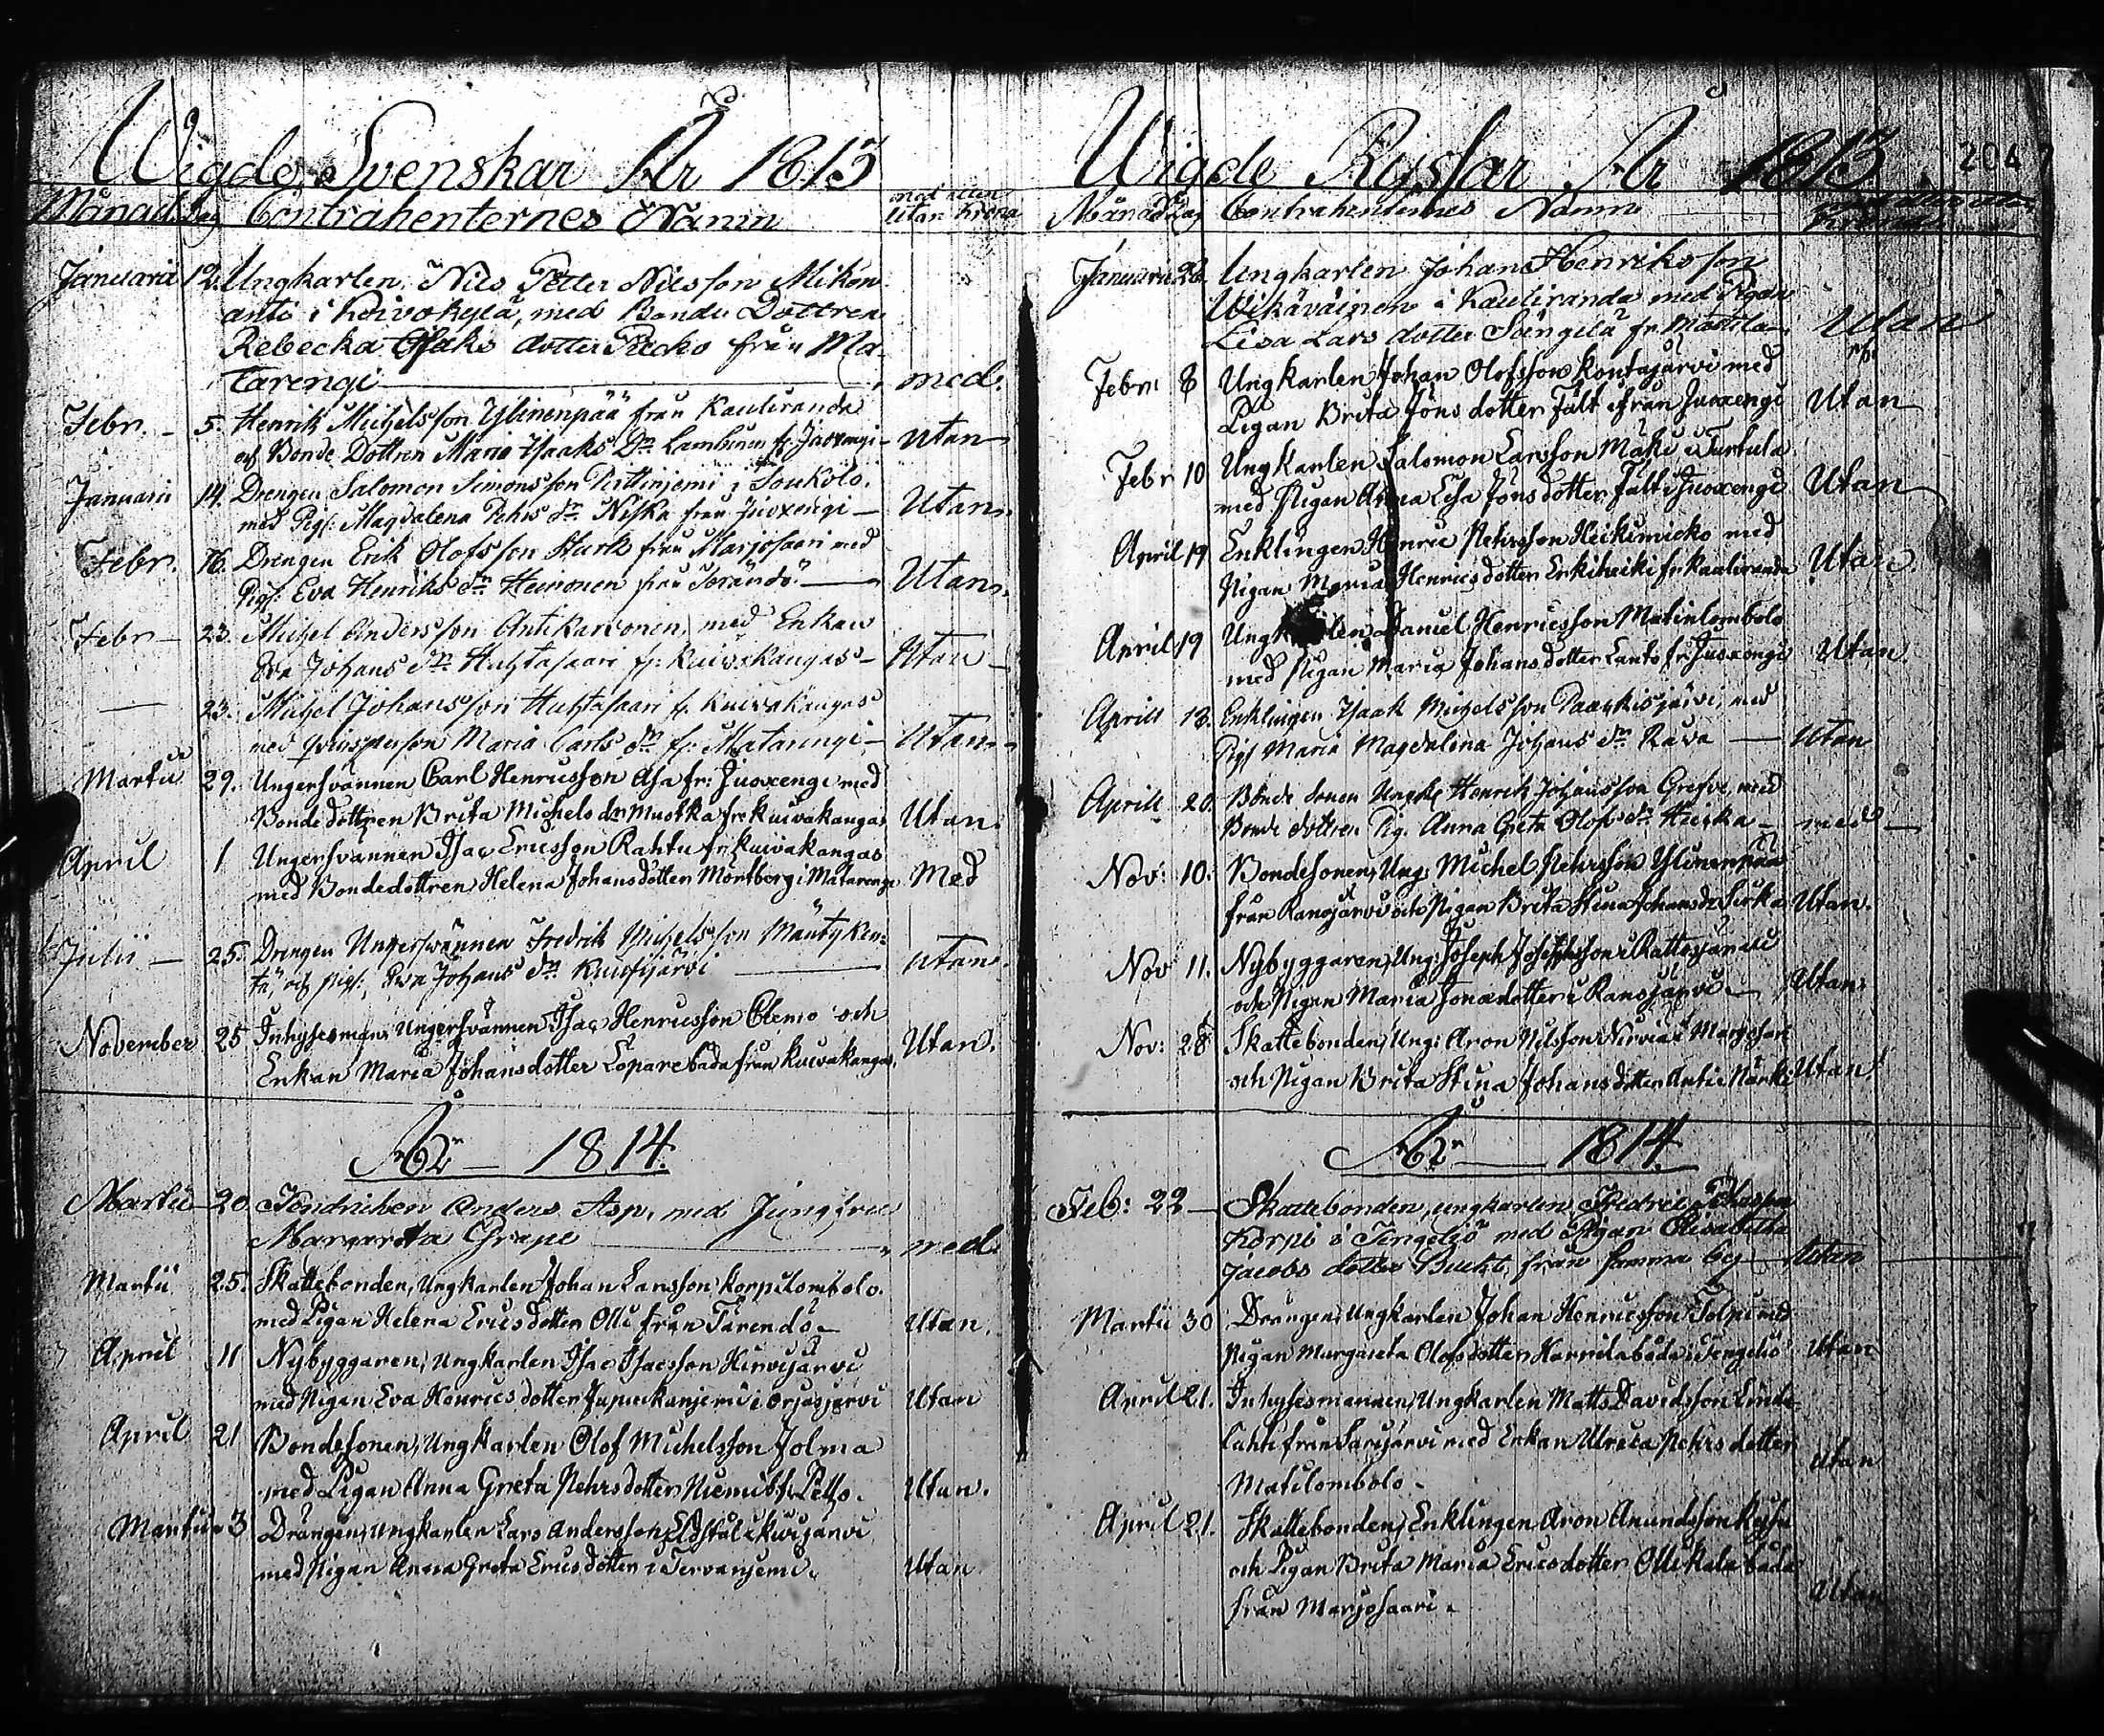 Wigde Svenskar År 1813
Månad Dag Contrahenternes Namn med eller utan Krona
Januarii 12. Ungkarlen, Nils Petter Nilsson Mikon
anti i Koivokylä, med Bonde Dottren
Rebecka Isaks dotter Picko från Ma-
tarengi med.
Febr. 5. Henrik Michelsson Ylinenpää från Kauliranda
och Bonde Dottren Maria Isaaks Dr Lambinen fr. Juoxengi utan
Januarii 14. Drengen Salomon Simonsson Pittinjemi i Soukolo.
med Pig: Magdalena Pehrs dr Niska från Juoxengi Utan
Febr. 16. Drengen Erik Olofsson Stark från Marjosaari med
Pig: Eva Henriks dr Heinonen från Tärändö Utan
Febr 23. Michel Andersson Antikarvonen, med Enkan
Eva Johans dr Huhtasaari fr: Kuivakangas Utan
23. Michel Johansson Huhtasaari fr Kuivakangas
med qvinsperson Maria Carls dr fr: Matarengi Utan
Martii 29. Ungersvännen Carl Henricsson Asa fr: Juoxengi med
Bondedottren Brita Michels dr Muotka fr Kuivakangas Utan.
April 1 Ungersvännen Isac Ericsson Rahtu fr Kuivakangas
med Bondedottren Helena Johansdotter Mörtberg i Matarengi Med
Julii 25. Drengen Ungerswännen Fredrik Michelsson Mäntyken-
tä, och pig: Eva Johans dr Kuusijärvi utan.
November 25 Inhysesman Ungersvännen Isac Henricsson Clemo och
Enkan Maria Johansdotter Loparebada från Kuivakangas. Utan.
År 1814.
Martii 20. Fendricken Anders Asp, med Jungfru
Margareta Grape med.
Martii 25. Skattebonden, Ungkarlen Johan Larsson Korpilombolo.
med Pigan Helena Ericsdotter Olli från Tärendö Utan.
April 11 Nybyggaren, Ungkarlen Isac Isacsson Hirvijärvi
med Pigan Eva Henricsdotter Jupukanjemi i Orjasjärvi Utan
April 21 Bondesonen, Ungkarlen Olof Michelsson Jolma
med Pigan Anna Greta Pehrsdotter Niemi från Pello. Utan.
Martii 3 Drängen, Ungkarlen Lars Andersson
med Pigan Anna Greta Ericsdotter i Turvanjemi. Utan
Wigde Ryssar År 1813. 204
Månad Dag Contrahenternes Namn
Januarii 26. Ungkarlen Johan Henriksson
Wikäväinen i Kauliranda med Pigan
Lisa Lars dotter Süngelä fr. Marttila Utan
Febr: 8 Ungkarlen Johan Olofsson Kontajärvi med
Pigan Brita Jöns dotter Fält från Juoxengi Utan
Febr 10 Ungkarlen Salomon Larsson Mäki i Turtula
med Pigan Anna Lisa Jönsdotter Fält i Juoxengi Utan
April 19 Enklingen Henric Pehrsson Heikinvicko med
Pigan Maria Henricsdotter Erkiheiki fr. Kauliranda Utan
April 19 Ungkarlen Daniel Henricsson Matinlombolo
med Pigan Maria Johansdotter Lanto fr. Juoxengi Utan
Aprill 13. Enklingen Isaak Michelsson Paarkisjärvi, med
Pig Maria Magdalena Johans dr Rava Utan
Aprill 20. Bonde Sonen Ungk: Henrik Johansson Grefve, med
Bonde dottren Pig. Anna Greta Olofs dr Hicka med
Nov: 10. Bondesonen, Ung: Michel Pehrsson Ylinenpää
från Ranosjärvi och Pigan Brita Stina Johansdr Sirka Utan.
Nov 11. Nybyggaren, Ung: Joseph Josephsson i Rattosjärvi
och Pigan Maria Jonædotter i Ranojärvi Utan.
Nov: 28 Skattebonden, Ung: Aron Nilsson Nirvia i Marjosari
och Pigan Brita Stina Johansdotter Antin Närki Utan.
År 1814.
Feb: 22 Skattebonden, ungkarlen Fredric
Korpi i Tengeliö med Pigan Elisabetha
Jacobs dotter Bucht från samma by Utan
Martii 30 Drängen, Ungkarlen Johan Henricsson Tolpi med
Pigan Margareta Olofsdotter Harrilabada i Tengeliö Utan
April 21. Inhysesmannen, Ungkarlen Matts Davidsson Linda-
lahti från Sarijärvi med Enkan Ulrica Pehrs dotter
Matilombolo Utan
April 21. Skattebonden, Enklingen Aron Anundsson Kyhu
och Pigan Brita Maria Ericsdotter Ollikala bada
från Marjosaari. Utan